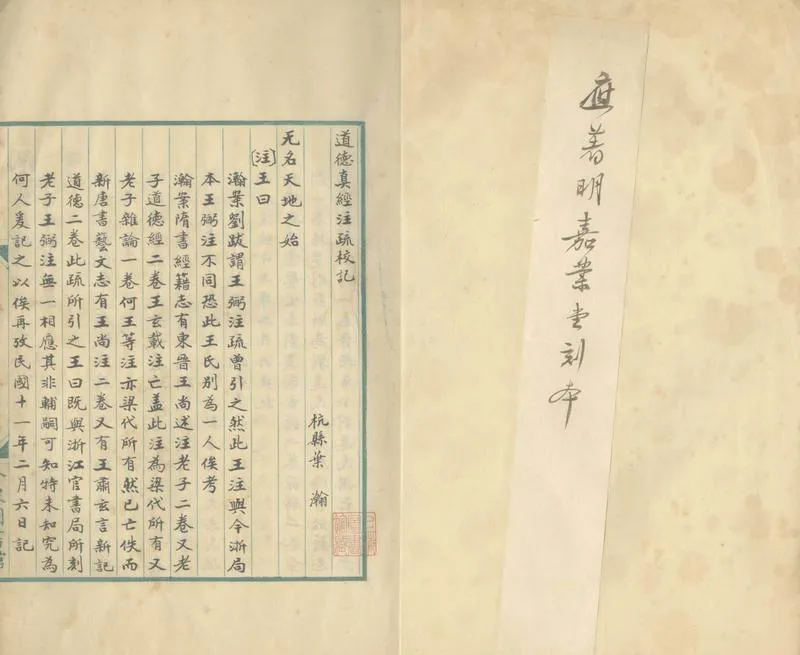 應著明嘉業堂刻本
道德真經注疏校記
杭縣葉瀚
无名天地之始
[注]王曰
瀚案劉跋謂王弼注疏曾引之然此王注與今浙局
本王弼注不同恐此王氏別為一人俟考
瀚案隋書經籍志有東晉王尚述注老子二卷又老
子道德經二卷王玄載注亡盖此注為梁代所有又
老子雜論一卷何王等注亦梁代所有然已亡佚而
新唐書藝文志有王尚注二卷又有王肅玄言新記
道德二卷此疏所引之王曰既與浙江官書局所刻
老子王弼注無一相應其非輔嗣可知特未知究為
何人爰記之以俟再攷民國十一年二月六日記